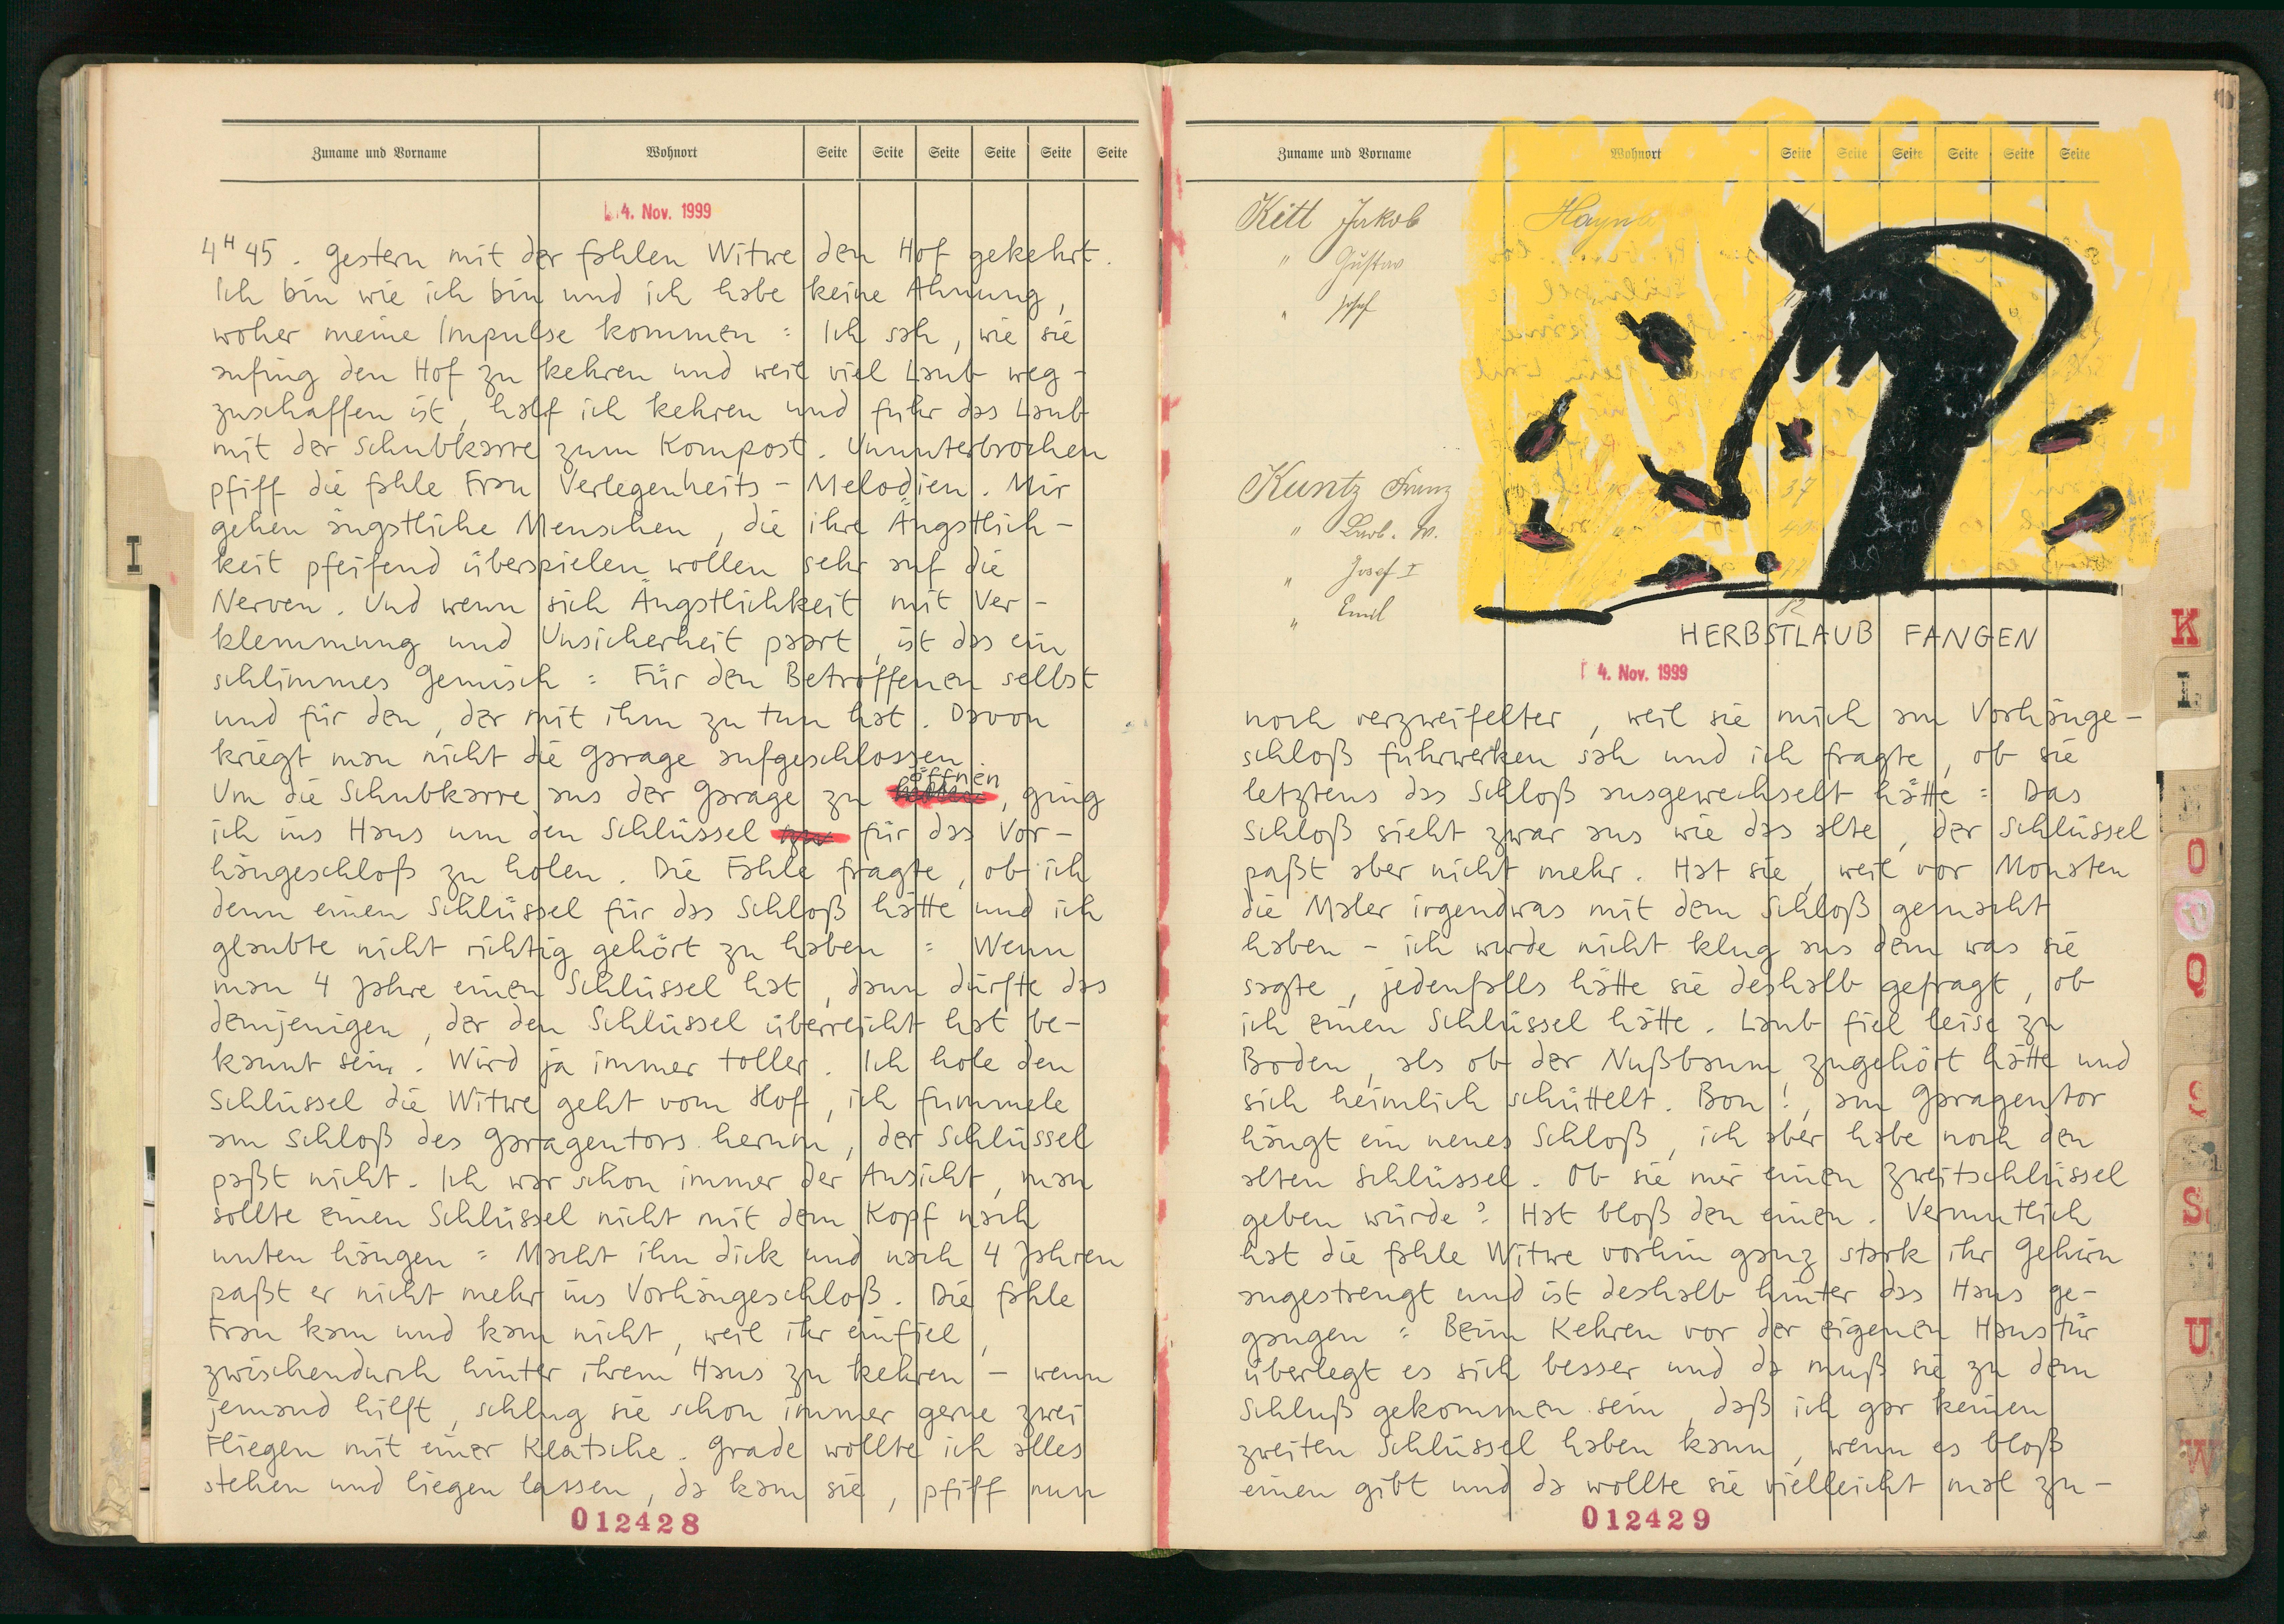 Zuname und Vorname Wohnort Seite Seite Seite Seite Seite Seite
4. Nov. 1999
4H45. Gestern mit der fahlen Witwe den Hof gekehrt.
Ich bin wie ich bin und ich habe keine Ahnung,
woher meine Impulse kommen: Ich sah, wie sie
anfing den Hof zu kehren und weil viel Laub weg-
zuschaffen ist, half ich kehren und fuhr das Laub
mit der Schubkarre zum Kompost. Ununterbrochen
pfiff die fahle Frau Verlegenheits-Melodien. Mir
gehen ängstliche Menschen, die ihre Ängstlich-
keit pfeifend überspielen wollen sehr auf die
Nerven. Und wenn sich Ängstlichkeit mit Ver-
klemmung und Unsicherheit paart, ist das ein
schlimmes Gemisch: Für den Betroffenen selbst
und für den, der mit ihm zu tun hat. Davon
kriegt man nicht die Garage aufgeschlossen.
Um die Schubkarre aus der Garage zu öffnen, ging
ich ins Haus um den Schlüssel für das Vor-
hängeschloß zu holen. Die Fahle fragte, ob ich
denn einen Schlüssel für das Schloß hätte und ich
glaubte nicht richtig gehört zu haben: Wenn
man 4 Jahre einen Schlüssel hat, dann dürfte das
demjenigen, der den Schlüssel überreicht hat be-
kannt sein. Wird ja immer toller. Ich hole den
Schlüssel die Witwe geht vom Hof, ich fummele
am Schloß des Garagentors herum, der Schlüssel
paßt nicht. Ich war schon immer der Ansicht, man
sollte einen Schlüssel nicht mit dem Kopf nach
unten hängen: Macht ihn dick und nach 4 Jahren
paßt er nicht mehr ins Vorhängeschloß. Die fahle
Frau kam und kam nicht, weil ihr einfiel,
zwischendurch hinter ihrem Haus zu kehren - wenn
jemand hilft, schlug sie schon immer gerne zwei
Fliegen mit einer Klatsche. Grade wollte ich alles
stehen und liegen lassen, da kam sie, pfiff nun
012428
I
Zuname und Vorname Wohnort Seite Seite Seite Seite Seite Seite
Kitt Jakob
" Gustav
" Josef
Kuntz Franz
" Josef I
" Emil
HERBSTLAUB FANGEN
4. Nov. 1999
noch verzweifelter, weil sie mich am Vorhänge-
schloß fuhrwerken sah und ich fragte, ob sie
letztens das Schloß ausgewechselt hätte: Das
Schloß sieht zwar aus wie das alte, der Schlüssel
paßt aber nicht mehr. Hat sie, weil vor Monaten
die Maler irgendwas mit dem Schloß gemacht
haben - ich wurde nicht klug aus dem was sie
sagte, jedenfalls hätte sie deshalb gefragt, ob
ich einen Schlüssel hätte. Laub fiel leise zu
Boden, als ob der Nußbaum zugehört hätte und
sich heimlich schüttelt. Bon!, am Garagentor
hängt ein neues Schloß, ich aber habe noch den
alten Schlüssel. Ob sie mir einen Zweitschlüssel
geben würde? Hat bloß den einen. Vermutlich
hat die fahle Witwe vorhin ganz stark ihr Gehirn
angestrengt und ist deshalb hinter das Haus ge-
gangen: Beim Kehren vor der eigenen Haustür
überlegt es sich besser und da muß sie zu dem
Schluß gekommen sein, daß ich gar keinen
zweiten Schlüssel haben kann, wenn es bloß
einen gibt und da wollte sie vielleicht mal zu-
012429
K
L
O
Q
S
U
W